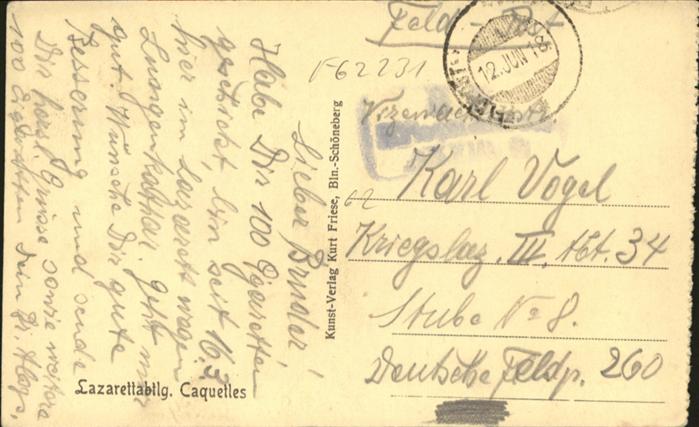 Feld-Post
F62231
12. JUN 18
Vizewachtmstr.
Karl Vogel
62
Kriegslaz. III. Abt. 34
Stube No 8.
Deutsche Feldp. 260
Kunst-Verlag Kurt Friese, Bln.-Schöneberg
Lieber Bruder!
Habe Dir 100 Cigaretten
geschickt bin seit 16.3
hier im Lazarett wegen
Lungenkatharr. Geht mir
gut. Wünsche Dir gute
Besserung und sende
Dir herzl. Grüsse sowie weitere
100 Cigaretten Dein Br. Aloys.
Lazarettabtlg. Caquelles